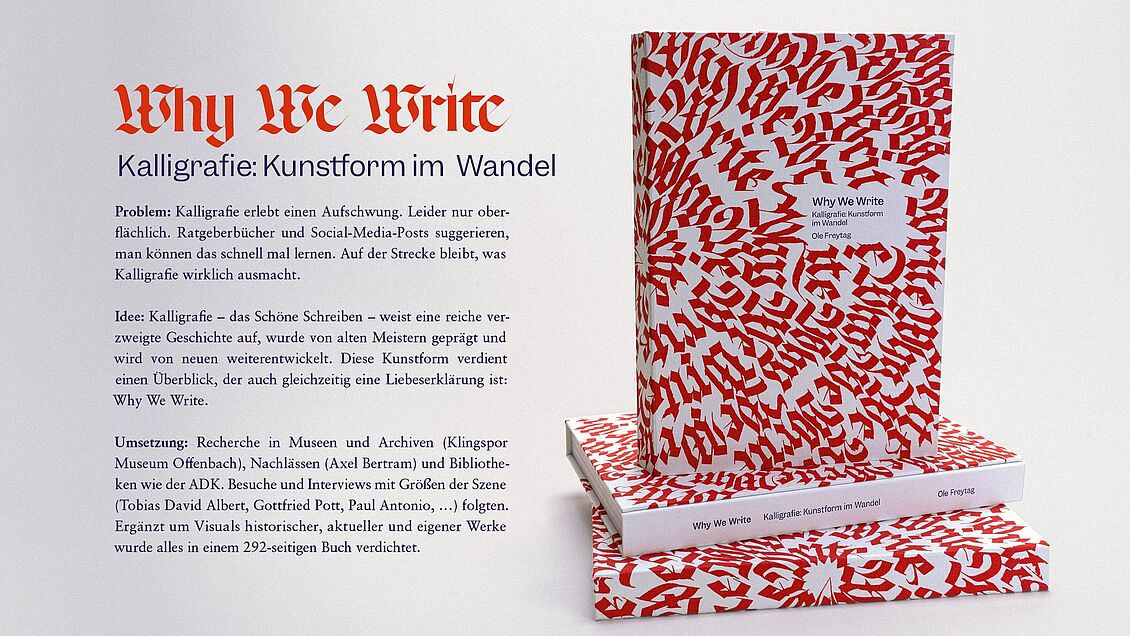 Why We Write
Kalligrafie: Kunstform im Wandel
Problem: Kalligrafie erlebt einen Aufschwung. Leider nur ober-
flächlich. Ratgeberbücher und Social-Media-Posts suggerieren,
man können das schnell mal lernen. Auf der Strecke bleibt, was
Kalligrafie wirklich ausmacht.
Idee: Kalligrafie – das Schöne Schreiben – weist eine reiche ver-
zweigte Geschichte auf, wurde von alten Meistern geprägt und
wird von neuen weiterentwickelt. Diese Kunstform verdient
einen Überblick, der auch gleichzeitig eine Liebeserklärung ist:
Why We Write.
Umsetzung: Recherche in Museen und Archiven (Klingspor
Museum Offenbach), Nachlässen (Axel Bertram) und Bibliothe-
ken wie der ADK. Besuche und Interviews mit Größen der Szene
(Tobias David Albert, Gottfried Pott, Paul Antonio, …) folgten.
Ergänzt um Visuals historischer, aktueller und eigener Werke
wurde alles in einem 292-seitigen Buch verdichtet.
Why We Write
Kalligrafie: Kunstform
im Wandel
Ole Freytag
Why We Write Kalligrafie: Kunstform im Wandel Ole Freytag